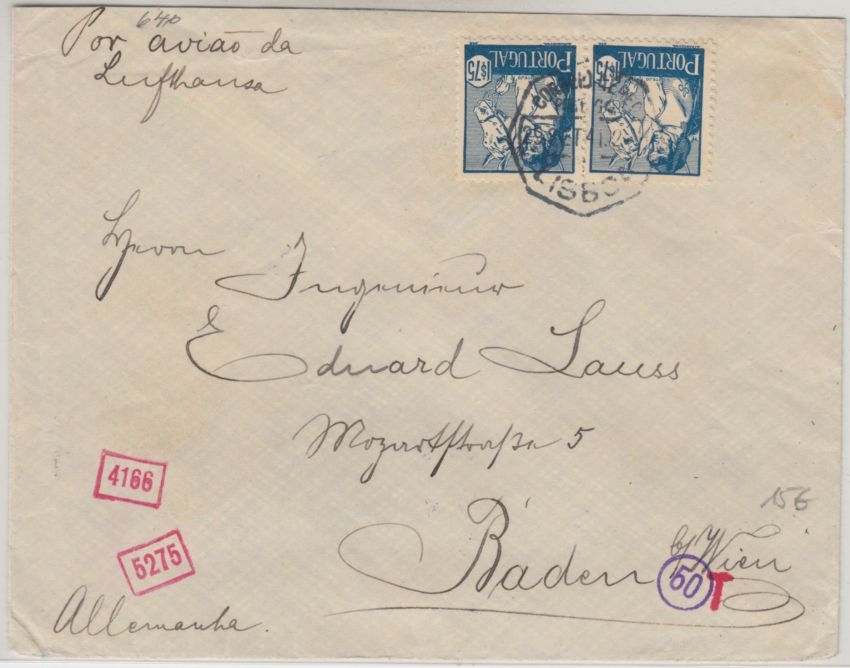 640
Por avião da
Lufthansa
PORTUGAL
1$75
PORTUGAL
1$75
CORREIO
29 SET 41
LISBOA
Herrn
Ingenieur
Eduard Lauss
Mozartstraße 5
15€
Baden b/Wien
4166
5275
50
T
Allemanha.